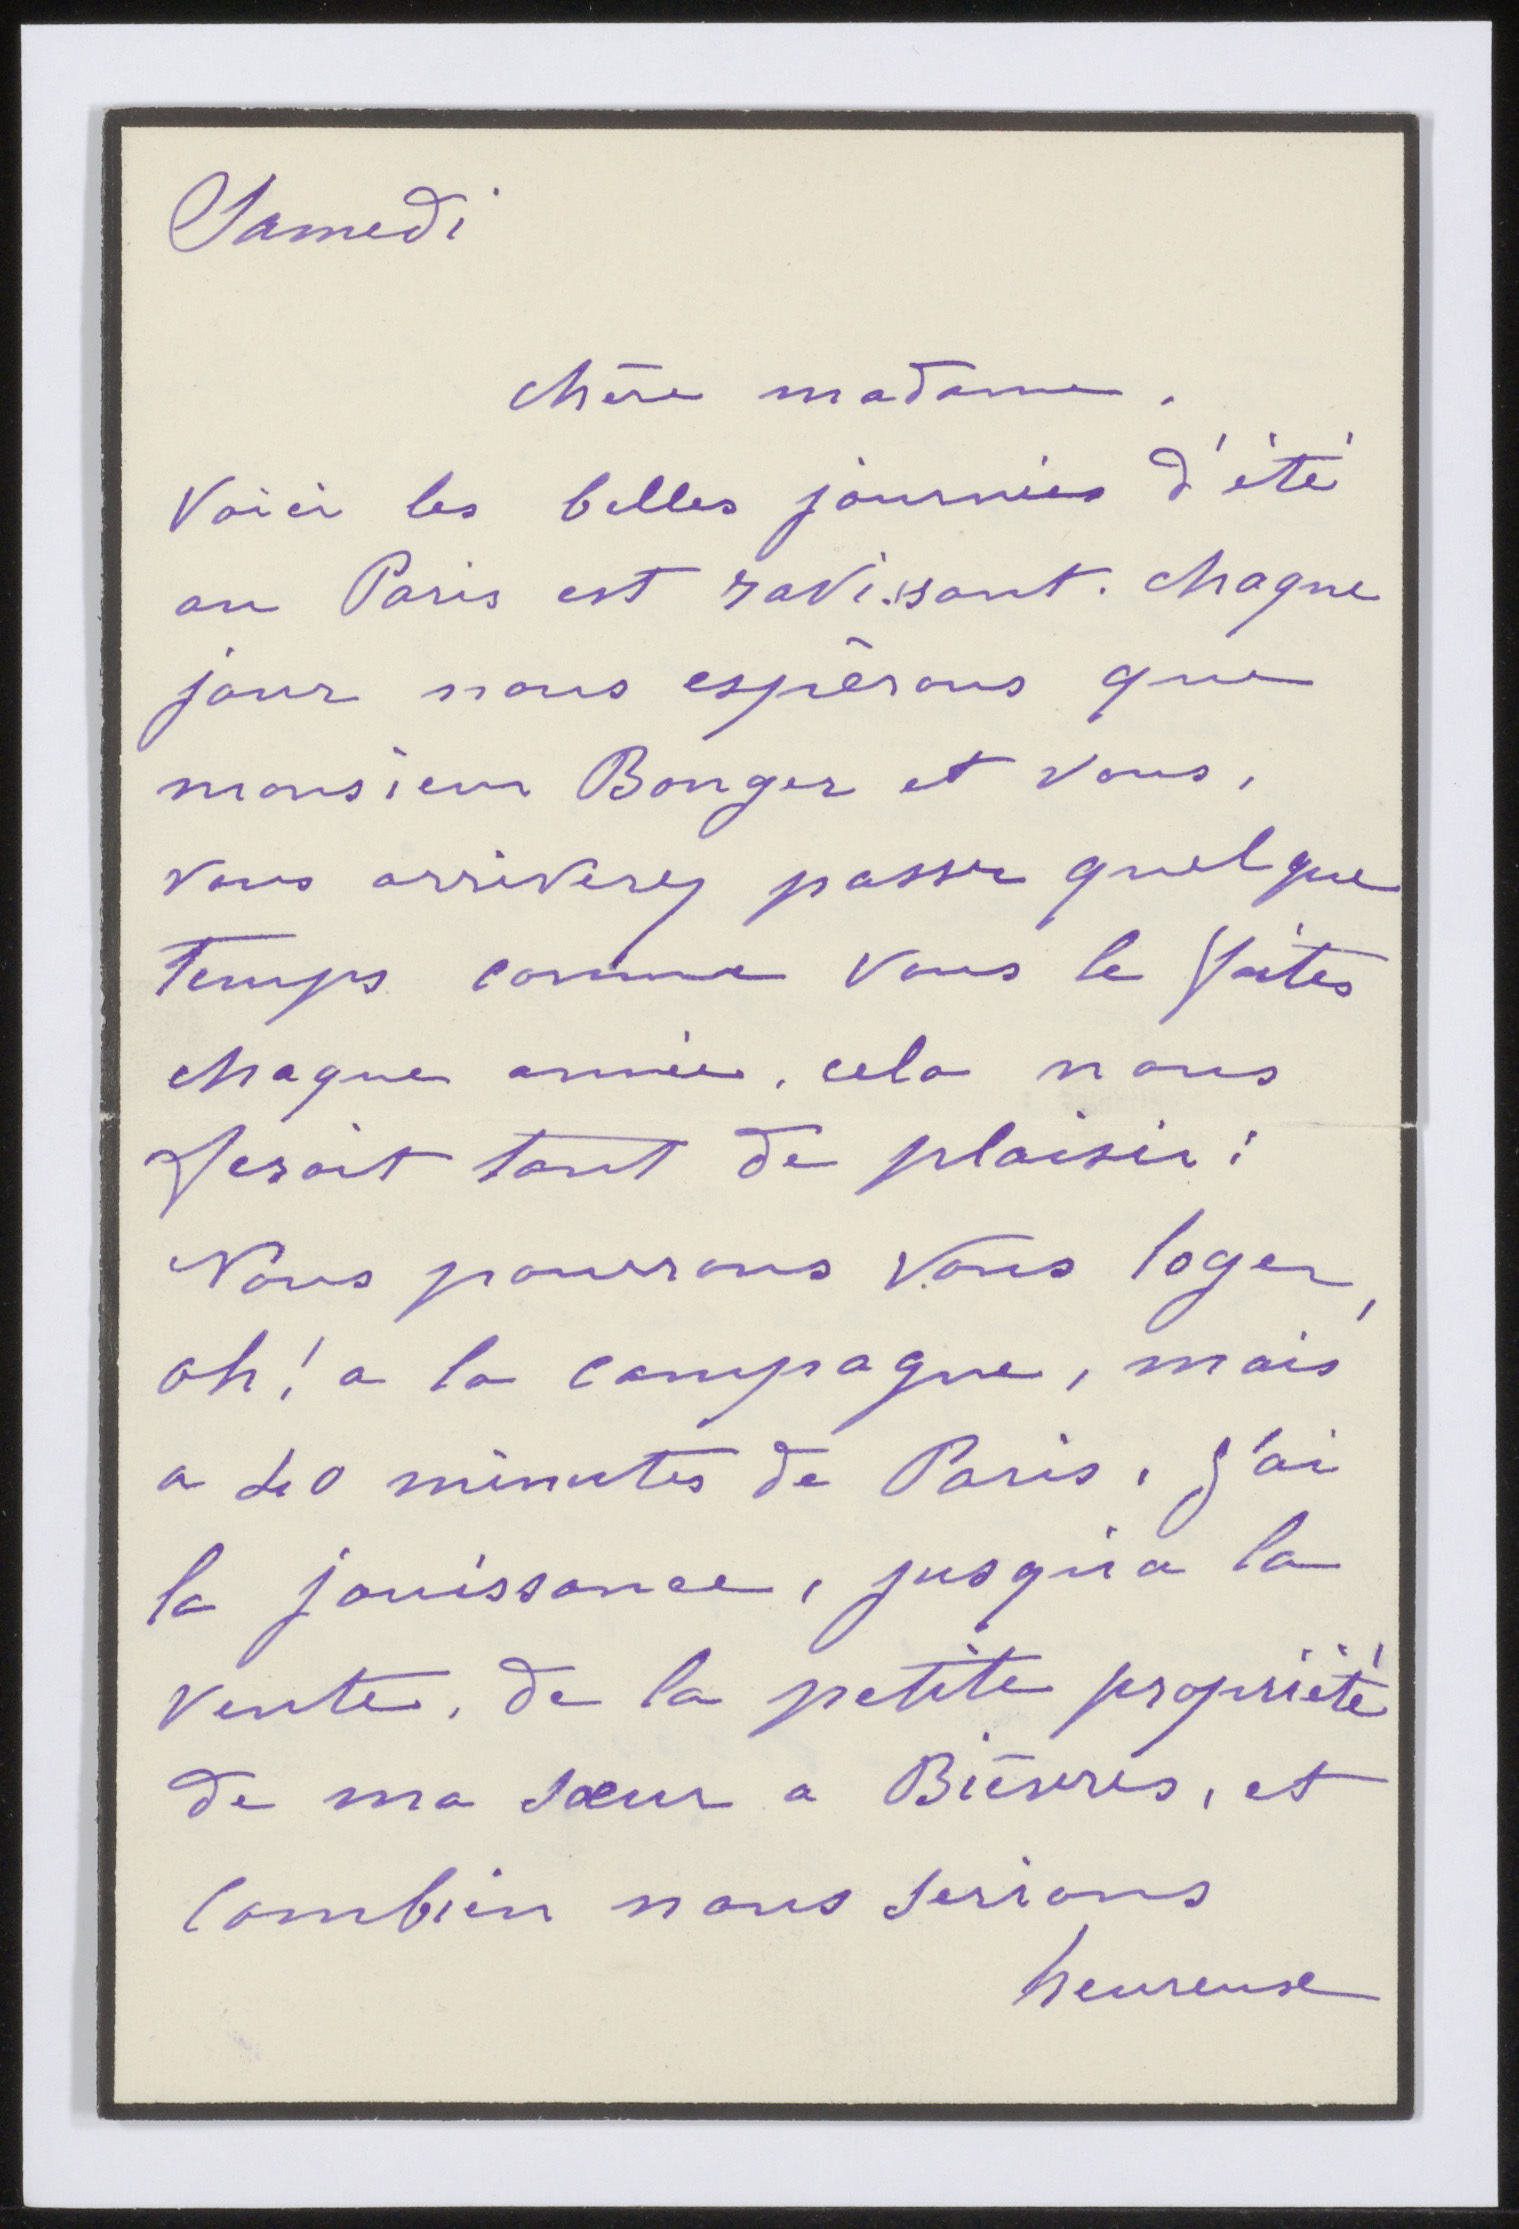 Samedi
chère madame.
Voici les belles journées d'été
ou Paris est ravissant. chaque
jour nous espérons que
monsieur Bonger et vous,
vous arriverez passer quelque
temps comme vous le faites
chaque année. cela nous
ferait tant de plaisir!
Nous pourrons vous loger,
oh! a la campagne, mais
a 40 minutes de Paris. J'ai
la jouissance, jusqu'a la
vente, de la petite propriété
de ma sœur a Bièvres, et
combien nous serions
heureuse